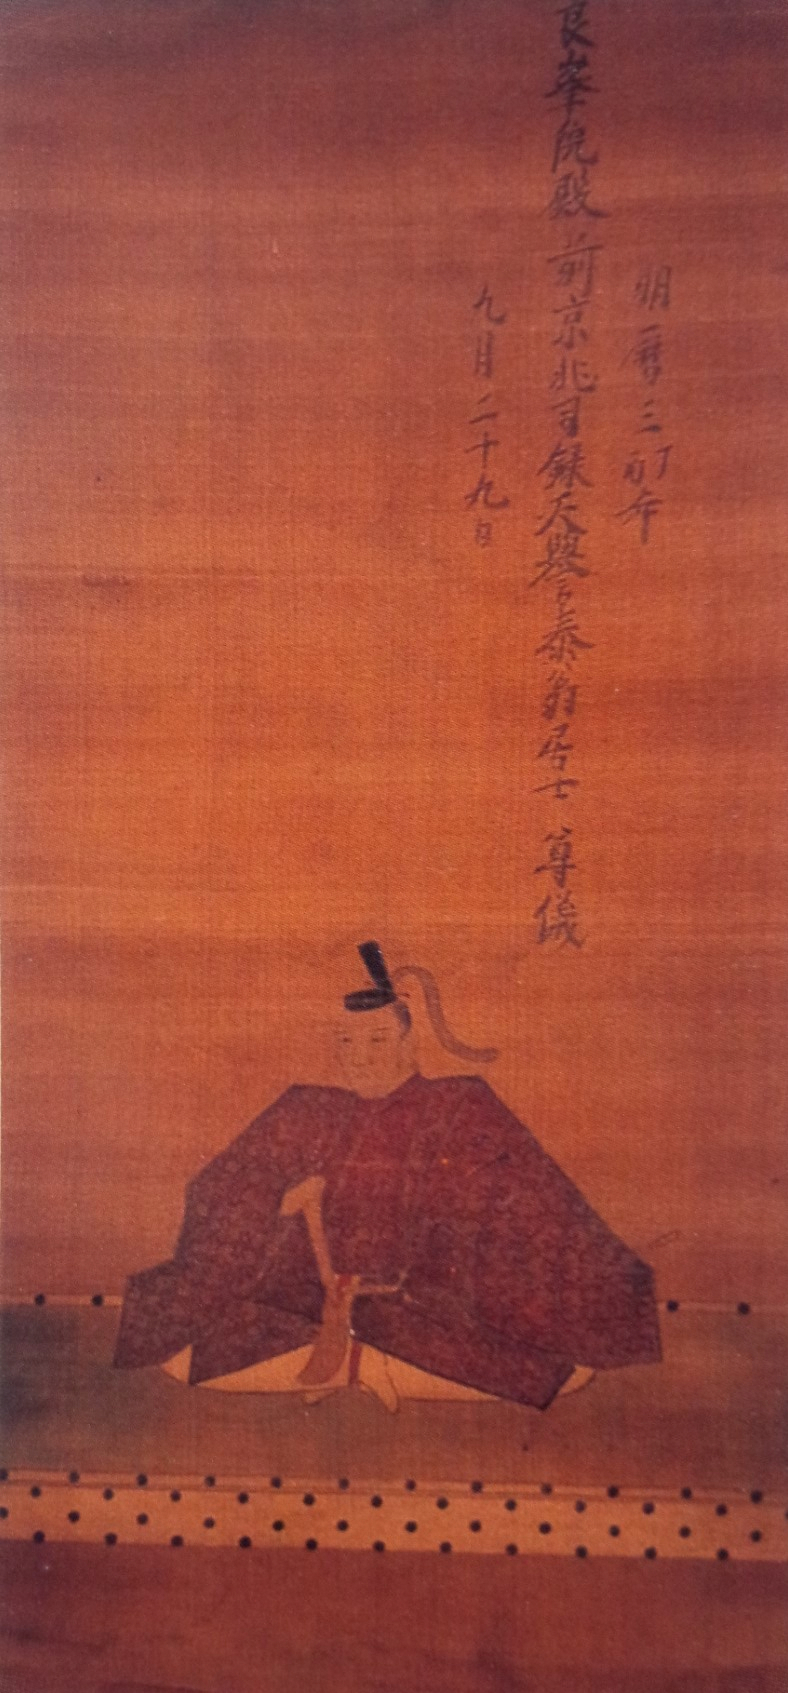 明暦三丁酉年
良峯院殿前京兆司録天譽泰翁居士 尊儀
九月二十九日